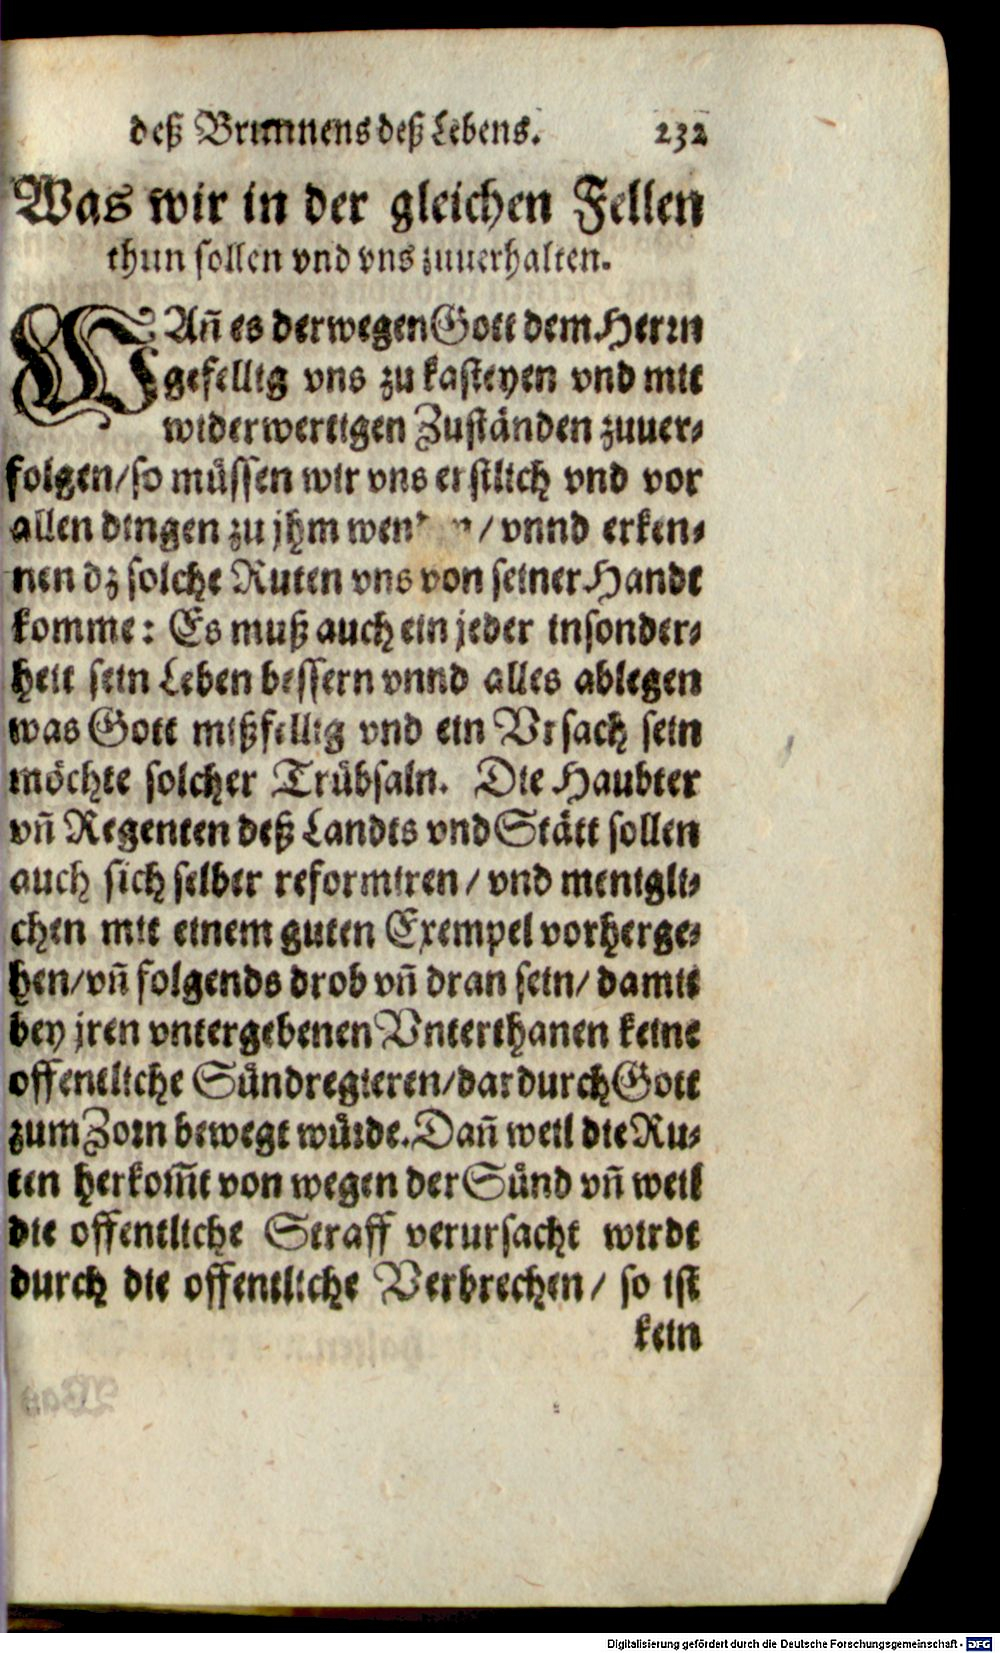 deß Brunnens deß Lebens. 232
Was wir in der gleichen Fellen
thun sollen vnd vns zuuerhalten.
WAn̄ es derwegen Gott dem Herrn
gefellig vns zu kasteyen vnd mit
widerwertigen Zuständen zuuer-
folgen/so müssen wir vns erstlich vnd vor
allen dingen zu jhm / vnnd erken-
nen dz solche Ruten vns von seiner Handt
komme: Es muß auch ein jeder insonder-
heit sein Leben bessern vnnd alles ablegen
was Gott mißfellig vnd ein Vrsach sein
möchte solcher Trübsaln. Die Haubter
vn̄ Regenten deß Landts vnd Stätt sollen
auch sich selber reformiren / vnd menigli-
chen mit einem guten Exempel vorherge-
hen/vn̄ folgends drob vn̄ dran sein/ damit
bey jren vntergebenen Vnterthanen keine
offentliche Sündregieren/dardurch Gott
zum Zorn bewegt würde. Dan̄ weil die Ru-
ten herkom̄t von wegen der Sünd vn̄ weil
die offentliche Straff verursacht wirdt
durch die offentliche Verbrechen / so ist
kein
Digitalisierung gefördert durch die Deutsche Forschungsgemeinschaft - DFG